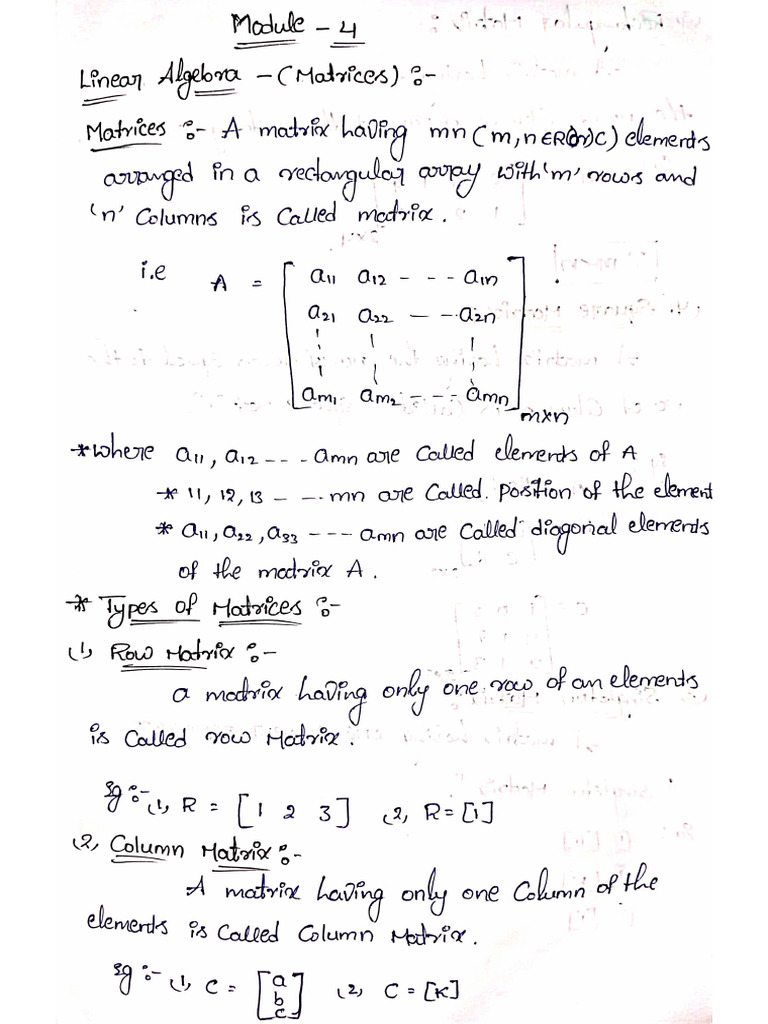 Module - 4
Linear Algebra - (Matrices) :-
Matrices :- A matrix having mn (m, n ∈ R (or) C) elements
arranged in a rectangular array with 'm' rows and
'n' Columns is Called matrix.
i.e A = [ a11 a12 - - - a1n
a21 a22 - - - a2n
am1 am2 - - - amn ] m×n
* where a11, a12 - - - amn are Called elements of A
* 11, 12, 13 - - - mn are Called. Position of the element
* a11, a22, a33 - - - amn are Called diagonal elements
of the matrix A.
* Types of Matrices :-
(1) Row Matrix :-
a matrix having only one row. of an elements
is Called row Matrix.
eg :- (1) R = [1 2 3] (2) R = [1]
(2) Column Matrix :-
A matrix having only one Column of the
elements is Called Column Matrix.
eg :- (1) C = [ a
b
c ] (2) C = [K]